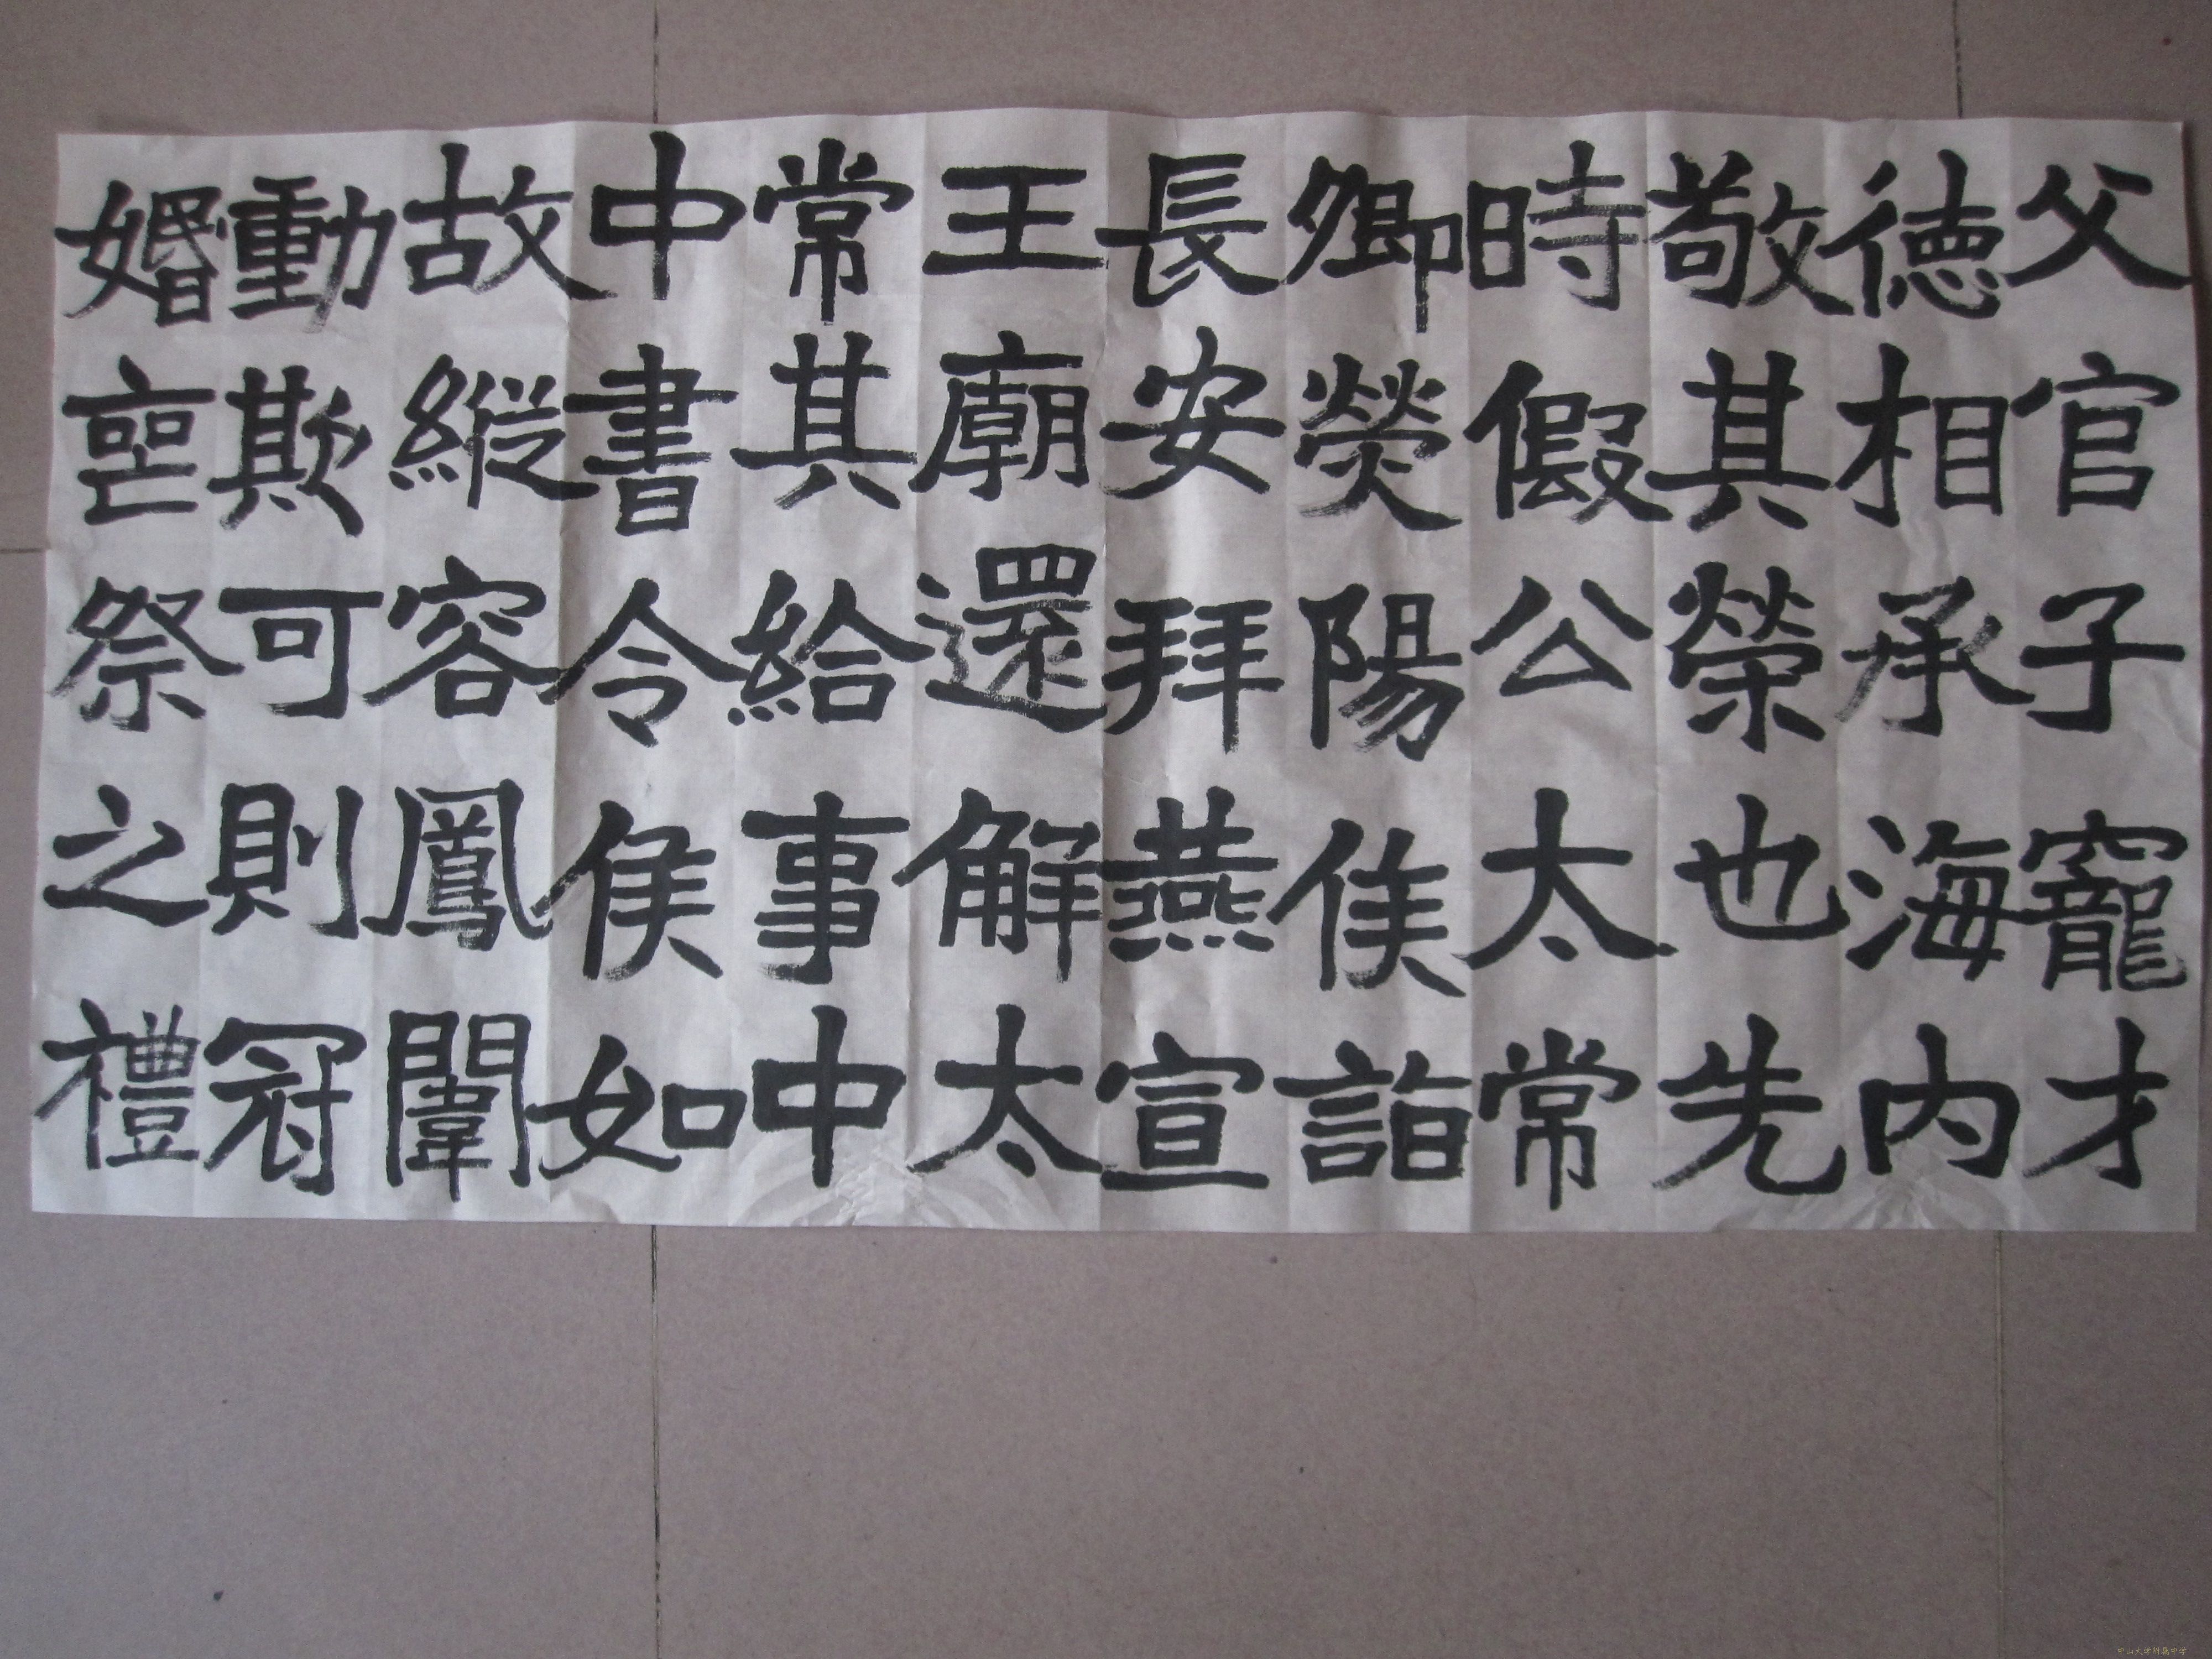 父官子寵才
德相承海内
敬其榮也先
時假公太常
卿熒陽侯詣
長安拜燕宣
王廟還解太
常其給事中
中書令侯如
故縱容鳳闈
動欺可則冠
婚喪祭之禮
中山大学附属中学